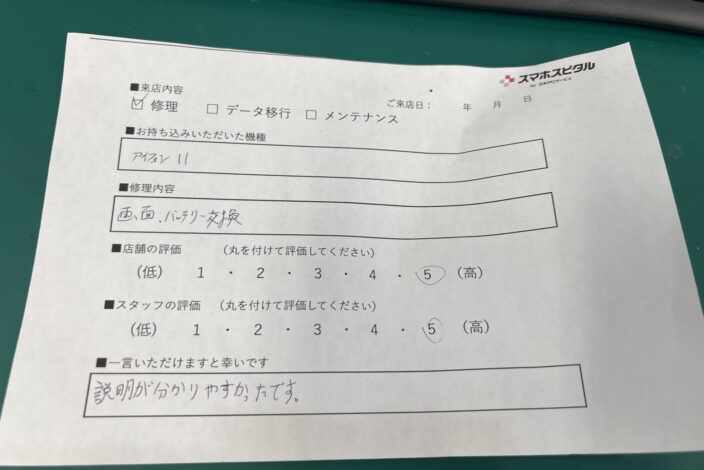 スマホスピタル
by 日本PCサービス
■来店内容
☑ 修理 □ データ移行 □ メンテナンス
ご来店日： 年 月 日
■お持ち込みいただいた機種
アイフォン 11
■修理内容
画面、バッテリー交換
■店舗の評価 （丸を付けて評価してください）
（低） 1 ・ 2 ・ 3 ・ 4 ・ 5 （高）
■スタッフの評価 （丸を付けて評価してください）
（低） 1 ・ 2 ・ 3 ・ 4 ・ 5 （高）
■一言いただけますと幸いです
説明が分かりやすかったです。